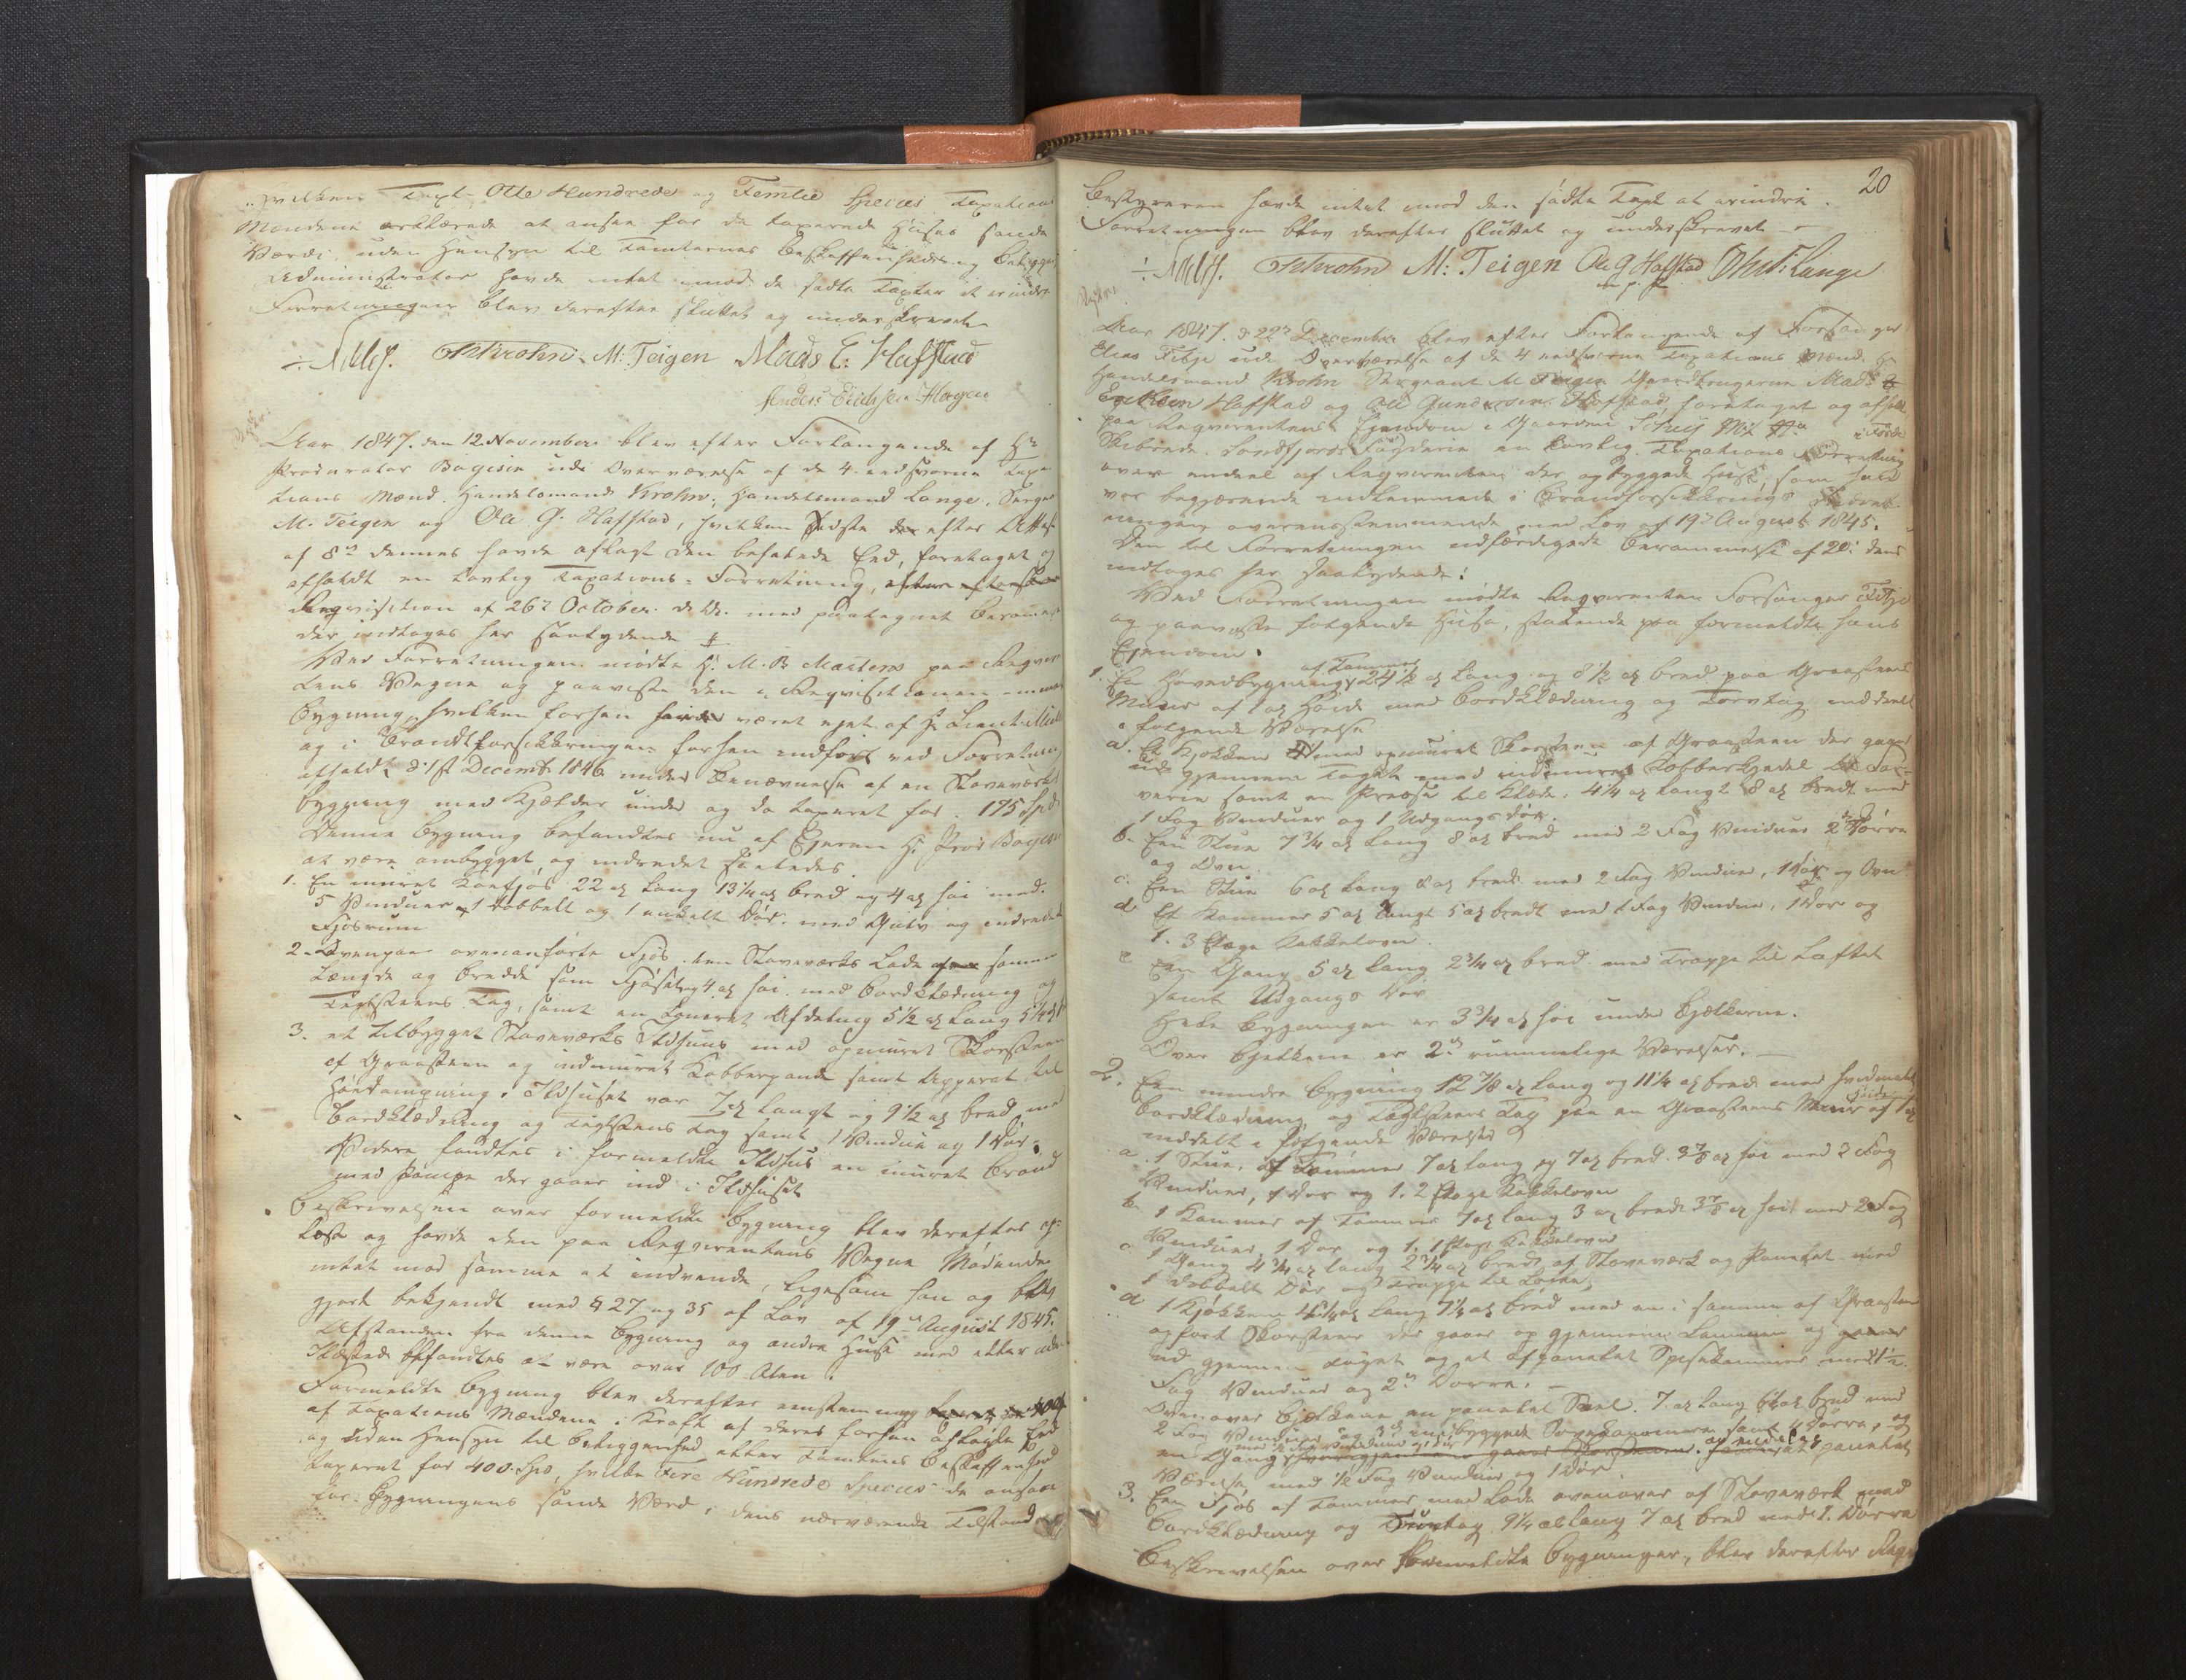 hvilken Taxt Otte Hundrede og Femtie Species Taxations
Mændene erklærede at ansee for de taxerede Huses sande
Værdi uden Hensyn til Tomternes Beskaffenhed og Beligge
Administrator havde intet mod de sadte Taxter at erindre
Forretningen blev derefter sluttet og underskreven
OKrohn. M: Teigen Mads E: Hafstad
Anders Erichsen Hagen
Aar 1847. den 12 November blev efter Forlangende af Hr
Procurator Bøgisen udi Overværelse af de 4 eedsvorne Taxa
tions Mænd. Handelsmand Krohn, Handelsmand Lange, Sergeant
M. Teigen og Ole G. Hafstad, hvilken sidste efter Attest
af 8de dennes havde aflagt den befalede Eed, foretaget og
afholdt en lovlig Taxations-Forretning,
Reqvisition af 26de October d. A. med paategnet Berammelse
der indtages her saalydende
Ved Forretningen mødte Hr. M. B. paa Reqviren
tens Vegne og paaviste den i Reqvisitionen
Bygning, hvilken forhen havde været ejet af Hr Lieut.
og i Brandforsikkringen forhen indført ved Forretning
afholdt d. 1ste Decembr 1846 under Benævnelse af en Stavværks
bygning med Kjelder under og da taxeret for 175 Spd
Denne Bygning befandtes nu af Ejeren Hr Proc Bøgisen
at være ombygget og indredet saaledes.
1. En muret Koefjøs 22 al lang 13 1/4 al bred og 4 al høi med
5 Vinduer og 1 dobbelt og 1 enkelt Dør med Gulv og indredet
Fjøsrum
2. Ovenpaa ovenanførte Fjøs en Stavværks Lade samme
Længde og Bredde som Fjøset og 4 al høi med Bordklædning og
Teglsteens Tag, samt en Afdeling 5 1/2 al lang 5 1/4 al
3. et tilbygget Stavværks Ildhuus med opmuret Skorsteen
af Graasteen og indmuret Kobberpande samt Apparat til
Høedampning. Ildhuset var 7 al langt og 9 1/2 al bred med
Bordklædning og Teglsteens Tag samt 1 Vindue og 1 Dør.
Videre fandtes i formeldte Ildhus en muret Brønd
med Pompe der gaaer ind i Ildhuset
Beskrivelsen over formeldte Bygning blev derefter op-
læst og havde den paa Reqvirentens Vegne Mødende
intet mod samme at indvende, ligesom han og blev
gjort bekjendt med § 27 og 35 af Lov af 19de August 1845.
Afstanden fra denne Bygning og andre Huse med eller uden
Ildsted befandtes at være over 100 Alen.
Formeldte Bygning blev derefter eenstemmig
af Taxations Mændene i Kraft af deres forhen aflagte Eed
og uden Hensyn til Beliggenhed eller Tomtens Beskaffenhed
taxeret for 400 Spd, hvilke Fire Hundrede Species de ansaae
for Bygningens sande Værd i dens nærværende Tilstand
20
Bestyreren havde intet mod den sadte Taxt at erindre.
Forretningen blev derefter sluttet og underskrevet
OKrohn M: Teigen Ole G Hafstad Lange
m. p. P.
Aar 1847. d. 22de December blev efter Forlangende af Forsanger
Elias Fitje udi Overværelse af de 4 eedsvorne Taxations Mænd
Handelsmand Krohn Sergeant M Teigen Gaardbrugerne Mads
Eriksen Hafstad og Ole Gundersen Hafstad, foretaget og afholdt
paa Reqvirentens Ejendom i Gaarden i Førde
Skibrede Søndfjords Fogderie en lovlig Taxations Forretning
over endeel af Reqvirentens der opbyggede Huse, som han
var begjærende indlemmede i Brandforsikkrings
overensstemmende med Lov af 19de August 1845.
Den til Forretningen udfærdigede Berammelse af 20de dens
indtages her saalydende:
Ved Forretningen mødte Reqvirenten Forsanger Fitje
og paaviste følgende Huse, staaende paa formeldte hans
Ejendom.
1. En Hovedbygning af Tømmer 24 1/2 al lang og 8 1/2 al bred paa Graasteens
Muur af 1 al Høide med Bordklædning og Torvtag inddeelt
i følgende Værelser
a. Et Kjøkken med opmuret Skorsteen af Graasteen der gaaer
ud gjennem Taget med indmuret Kobberkjedel til Far-
verie samt en Presse til Klæde. 4 1/4 al langt 8 al bredt med
1 Fag Vinduer og 1 Udgangsdør.
b. Een Stue 7 3/4 al lang 8 al bred med 2 Fag Vinduer 2de Dørre
og Ovn
c. Een Stue 6 al lang 8 al bred med 2 Fag Vinduer, 1 Dør og Ovn
d. Et Kammer 5 al langt 5 al bredt med 1 Fag Vindue, 1 Dør og
1. 3 Etages Kakkelovn.
e. Een Gang 5 al lang 2 3/4 al bred med Trappe til Loftet
samt Udgangs Dør
Hele Bygningen er 3 3/4 al høi under Bjelkerne.
Over Bjelkene er 2de rummelige Værelser.
2. Een mindre Bygning 12 7/8 al lang og 11 1/4 al bred med hvidmalet
Bordklædning og Teglsteens Tag paa en Graasteens Muur af 1 al Høide
inddelt i følgende Værelser
a. 1 Stue, af Tømmer 7 al lang og 7 al bred 3 7/8 al høi med 2 Fag
Vinduer, 1 Dør og 1. 2 Etages Kakkelovn
b. 1 Kammer af Tømmer 7 al lang 3 al bredt 3 7/8 al høi med 2 Fag
Vinduer, 1 Dør og 1. 1 Etages Kakkelovn
c. 1 Gang 4 3/4 al lang 2 3/4 al bredt af Stavværk og Panelet med
1 dobbelt Dør og Trappe til Loftet,
d. 1 Kjøkken 4 1/4 al lang 7 1/2 al bred med en i samme af Graasteen
opført Skorsteen der gaaer op gjennem Lemmen og
ud gjennem Taget og et afpanelet Spisekammer med 1 1/2
Fag Vinduer og 2de Dørre.
Ovenover Bjelkene en panelet Sal. 7 al lang al bred med
2 Fag Vinduer og 3de indbyggede Sovekammere samt 4 Dørre, og
en Gang panelet
Værelse, med 1/2 Fag Vindue og 1 Dør
3. Een Fjøs af Tømmer med Lade ovenover af Stavværk med
Bordklædning og Torvtag 9 1/4 al lang 7 al bred med 2. Dørre
Beskrivelsen over formeldte Bygninger, blev derefter